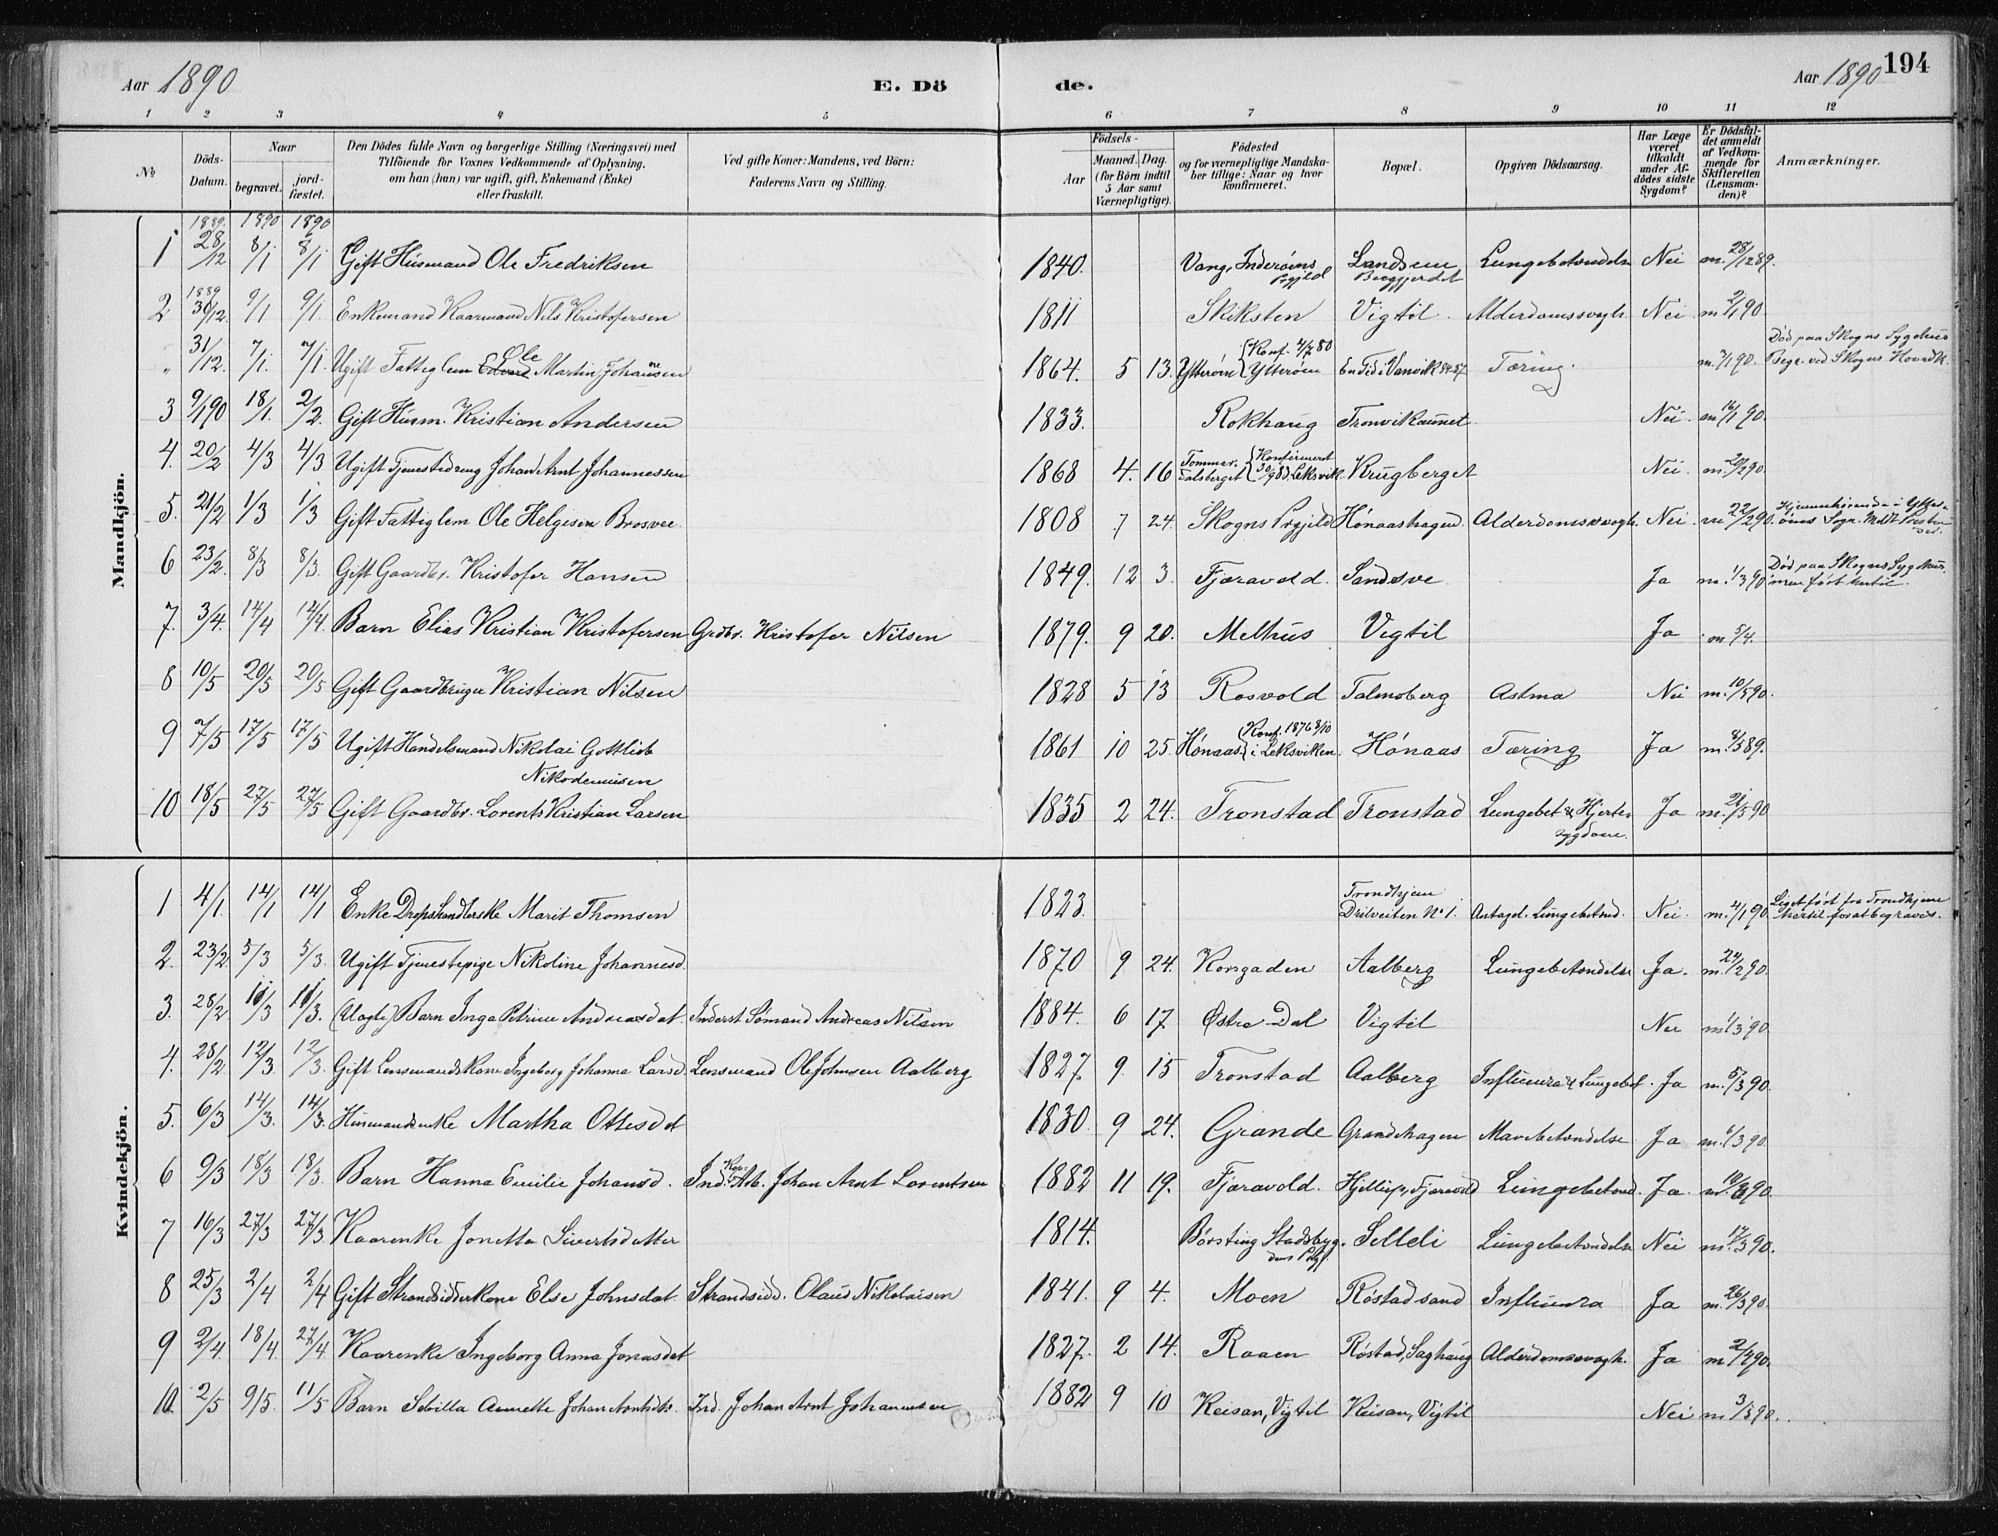 Aar 1890 E. Dö de. Aar 1890 194
1 2 3 4 5 6 7 8 9 10 11 12
No Döds-Datum. Naar begravet. jord-fæstet. Den Dödes fulde Navn og borgerlige Stilling (Næringsvei) med Tilföiende for Voxnes Vedkommende af Oplysning, om han (hun) var ugift, gift, Enkemand (Enke) eller fraskilt. Ved gifte Koner: Mandens, ved Börn: Faderens Navn og Stilling. Födsels- Aar Maaned. Dag. (for Börn indtil 5 Aar samt Værnepligtige). Födested og for værnepligtige Mandskaber tillige: Naar og hvor konfirmeret. Bopæl. Opgiven Dödsaarsag. Har Læge været tilkaldt under Afdödes sidste Sygdom? Er Dödsfaldet anmeldt af Vedkommende for Skifteretten (Lensmanden)? Anmærkninger.
Mandkjön.
1889. 1890 1890
1 28/12 8/1 8/1 Gift Husmand Ole Fredriksen 1840. Vang, Inderøens Prgjld Landsem Berggjerdet Lungebetændelse Nei m. 28/12 89.
2 1889 30/12. 9/1 9/1. Enkemand Kaarmand Nils Kristofersen 1811 Skiksten Vigtil. Alderdomssvagh. Nei m 2/1 90.
" 31/12. 7/1. 7/1 Ugift Fattiglem Edvard Ole Martin Johansen 1864. 5 13. Ytterøen {Konf. 4/7 80 Ytterøen En Tid i Vanvik 84-87. Tæring. m. 7/1 90. Død paa Skogns Sygehus Begr. ved Skogns Hovedk.
3 9/1 90 18/1 2/2. Gift Husm. Kristian Andersen 1833. Rokhaug Tronvikaunet Nei. m 16/1 90.
4. 20/2 4/3 4/3 Ugift Tjenestedreng Johan Arnt Johannessen 1868 4. 16 Tommerdalsberget {Konfirmeret 30/9 83 Leksvik. Krugberget Nei. m. 20/2 90.
5. 21/2 1/3 1/3 Gift Fattiglem Ole Helgesen Brosvee. 1808 7 24. Skogns Prgjeld Hónaashagen Alderdomssvagh. Nei. m 22/2 90. Hjemmehørende i Ytterøens Sogn. Meldt Presten der.
6 23/2. 8/3 8/3. Gift Gaardbr. Kristofer Hansen 1849. 12 3. Fjæravold. Sandsve Ja m. 1/3 90 Død paa Skogns Sygehus, men ført hertil.
7. 3/4. 14/4 14/4. Barn Elias Kristian Kristofersen Grdbr. Kristofer Nilsen 1879. 9 20. Melhus Vigtil Ja m 5/4.
8 10/5 20/5 20/5 Gift Gaardbruger Kristian Nilsen 1828 5 13 Rosvold Talmoberg Astma Nei m. 10/5 90.
9 7/5 17/5 17/5 Ugift Handelsmand Nikolai Gottlieb Nikodemusen 1861 10 25. Hónaas {Konf. 1876 8/10 i Leksviken Hónaas Tæring Ja m. 8/5 89.
10 18/5 27/5 27/5 Gift Gaardbr. Lorents Kristian Larsen 1835 2 24. Tronstad Tronstad Lungebet & Hjertesygdom. Ja m. 21/5 90
Kvindekjön.
1 4/1. 14/1 14/1 Enke Dropshandlerske Marit Thomsen 1823. Trondhjem Drilveiten No 1. Antagel. Lungebetænd. Nei. m. 4/1 90 Liget ført fra Trondhjem hertil for at begraves.
2. 23/2 5/3 5/3. Ugift Tjenestepige Nikoline Johannesd. 1870 9 24. Korsgaden Aalberg Lungebetændelse Ja. m. 24/2 90.
3. 28/2 11/3 11/3. (Uægte) Barn Inga Petrine Andreasdat. Inderst Sømand Andreas Nilsen 1884. 6 17 Østre Dal Vigtil Nei m 1/3 90.
4. 28/2. 12/3. 12/3. Gift Lensmandskone Ingeborg Johanna Larsd. Lensmand Ole Johnsen Aalberg 1827. 9. 15 Tronstad Aalberg Influenza & Lungebet. Ja m. 5/3 90.
5. 6/3 14/3. 14/3. Husmandsenke Martha Ottesdat 1830. 9 24. Grande Grandehagen Mavebetændelse Ja m. 6/3 90.
6 9/3 18/3 18/3. Barn Hanna Emilie Johansd. Ind. Arb. Johan Arnt Lorentsen 1882 11 19. Fjæravold. Hjellup, Fjæravold Lungebetænd. Ja. m. 10/3 90.
7 16/3 27/3 27/3. Kaarenke Jonetta Sivertsdatter 1814. Børsting Stadsbygdens Prgj. Selleli Lungebetændelse Nei m. 17/3 90.
8 25/3 2/4 2/4 Gift Strandsidderkone Else Johnsdat. Strandsidd. Olaus Nikolaisen 1841. 9 4. Moen Røstadsand Influenza Ja m. 26/3 90.
9 2/4. 18/4. 27/4. Kaarenke Ingeborg Anna Jonasdat 1827. 2 14. Raaen Røstad, Saghaug Alderdomssvagh. Ja m 2/4 90.
10. 2/5 9/5. 11/5 Barn Sebilla Annette Johan Arntsdtr. Ind. Johan Arnt Johannesen 1882 9 10 Keisan, Vigtil Keisan, Vigtil Nei m 3/5 90.